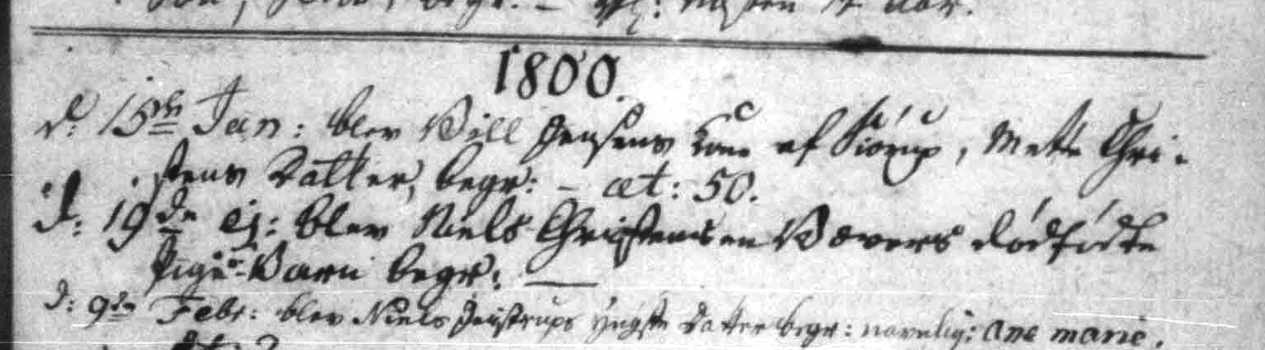 1800.
d: 15de Jan: blev Vill Jensens Kone af Kiorup, Mette Chri-
stens Datter, begr: - æt: 50.
d: 19de ej: blev Niels Christensen Vævers dødfødte
Pige-Barn begr: —
d: 9de Febr: blev Niels yngste Datter begr: navnlig: Ane Marie.